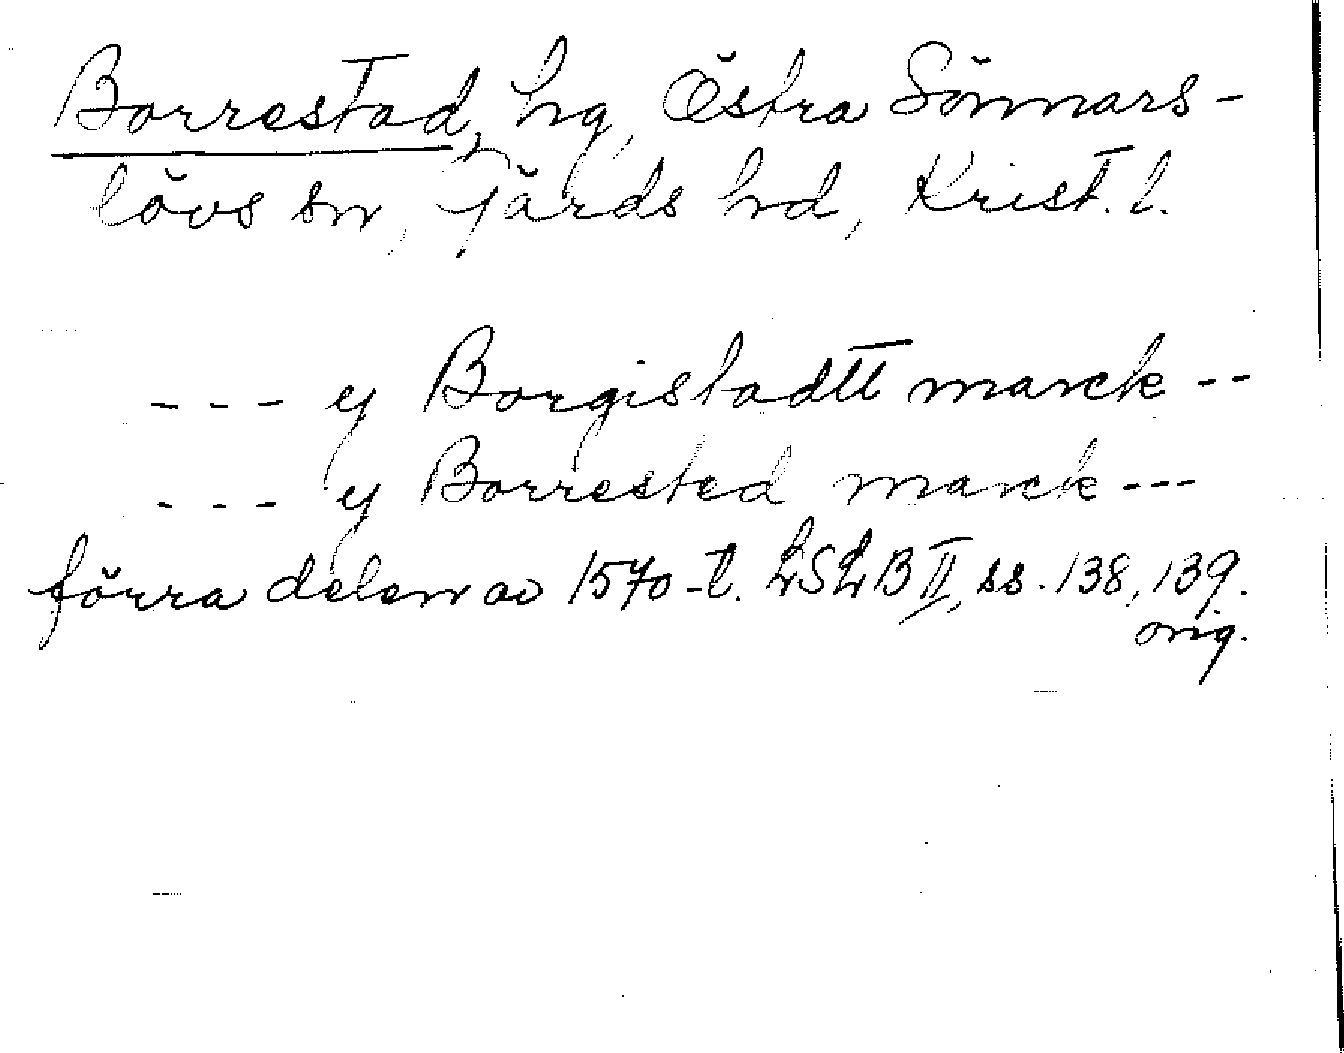 Borrestad, hg, Östra Sönnars-
lövs sn, Gärds hd, Krist. l.
--- y Borgistadtt marck --
--- y Borrested marck ---
förra delen av 1570-t. LSLB II, ss. 138, 139.
orig.